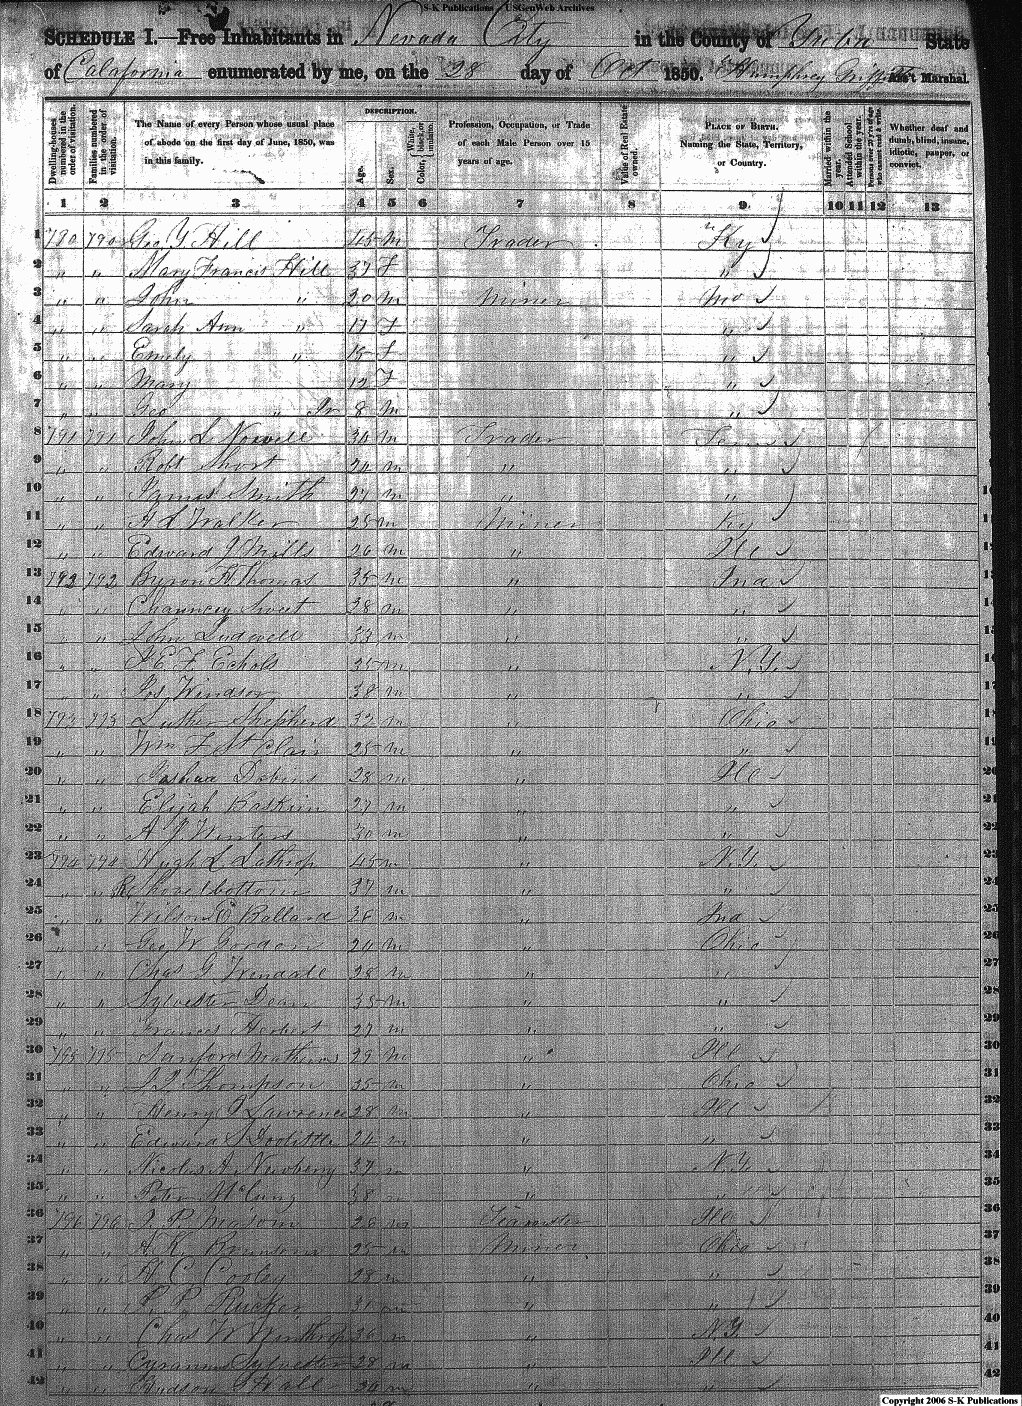 S-K Publications - USGenWeb Archives
SCHEDULE I.—Free Inhabitants in Nevada City in the County of Yuba State
of Calafornia enumerated by me, on the 28 day of Oct 1850. Humphrey Griffith Ass't Marshal.
Dwelling-houses numbered in the order of visitation.
Families numbered in the order of visitation.
The Name of every Person whose usual place of abode on the first day of June, 1850, was in this family.
DESCRIPTION.
Age.
Sex.
Color, White, black, or mulatto.
Profession, Occupation, or Trade of each Male Person over 15 years of age.
Value of Real Estate owned.
PLACE OF BIRTH. Naming the State, Territory, or Country.
Married within the year.
Attended School within the year.
Persons over 20 y'rs of age who cannot read & write.
Whether deaf and dumb, blind, insane, idiotic, pauper, or convict.
1 2 3 4 5 6 7 8 9 10 11 12 13
1 790 790 Geo Y Hill 45 M Trader Ky
2 " " Mary Francis Hill 37 F "
3 " " John " 20 M Miner Mo
4 " " Sarah Ann " 17 F "
5 " " Emily " 15 F "
6 " " Mary 12 F "
7 " " Geo " Jr 8 M "
8 791 791 John L Nowell 30 M Trader Tenn
9 " " Robt Short 24 M " "
10 " " James Smith 27 M " "
11 " " A L Walker 25 M Miner Ky
12 " " Edward J Mills 26 M " Ill
13 792 792 Byron H Thomas 35 M " Ind
14 " " Chauncey Sweet 38 M " "
15 " " John Ludwell 33 M " "
16 " " J E F Echols 35 M " N.Y.
17 " " Jos Windsor 38 M " "
18 793 793 Luther Shepherd 32 M " Ohio
19 " " Wm F St Clair 25 M " "
20 " " Joshua Dobins 28 M " Ill
21 " " Elijah Baskim 27 M " "
22 " " A J Winters 30 M " "
23 794 794 Hugh L Lathrop 45 M " N.Y.
24 " " R Shoe1bottom 37 M " "
25 " " Wilson Ballard 28 M " Ind
26 " " Geo W Gordon 24 M " Ohio
27 " " Chas G Wendall 28 M " "
28 " " Sylvester Dean 35 M " "
29 " " Frances Herbert 27 M " "
30 795 795 Sanford Mathews 29 M " Ill
31 " " J J Thompson 35 M " Ohio
32 " " Henry J Lawrence 28 M " Ill
33 " " Edward S Doolittle 24 M " "
34 " " Nicolus A Newberry 37 M " N.Y.
35 " " Peter McClung 38 M " "
36 796 796 J P Mason 28 M Teamster Ill
37 " " A K 25 M Miner Ohio
38 " " H C Cooley 28 M " "
39 " " L P Rucker 31 M " "
40 " " Chas W Winthrop 36 M " N.Y.
41 " " Cyranus Sylvester 28 M " Ill
42 " " Hudson Hall 24 M " "
Copyright 2006 S-K Publications